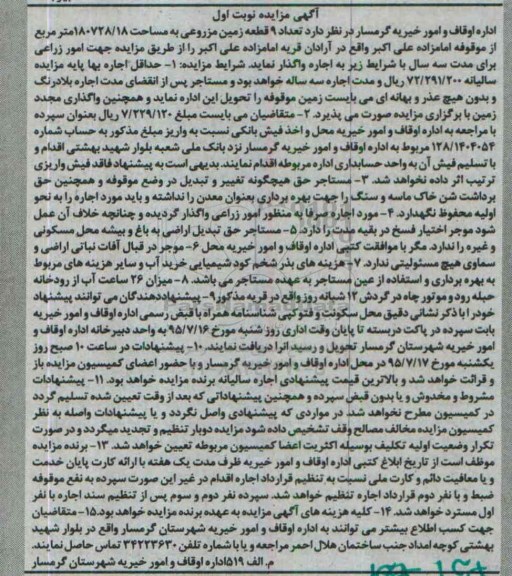 آگهی مزایده نوبت اول
اداره اوقاف و امور خیریه گرمسار در نظر دارد تعداد ۹ قطعه زمین مزروعی به مساحت ۱۸۰۷۲۸/۱۸متر مربع
از موقوفه امامزاده علی اکبر واقع در آرادان قریه امامزاده علی اکبر را از طریق مزایده جهت امور زراعی
برای مدت سه سال با شرایط زیر به اجاره واگذار نماید. شرایط مزایده: ۱- حداقل اجاره بها پایه مزایده
سالیانه ۷۲/۲۹۱/۲۰۰ ریال و مدت اجاره سه ساله خواهد بود و مستاجر پس از انقضای مدت اجاره بلادرنگ
و بدون هیچ عذر و بهانه ای می بایست زمین موقوفه را تحویل این اداره نماید و همچنین واگذاری مجدد
زمین با برگزاری مزایده صورت می پذیرد. ۲- متقاضیان می بایست مبلغ ۷/۲۲۹/۱۲۰ ریال بعنوان سپرده
با مراجعه به اداره اوقاف و امور خیریه محل و اخذ فیش بانکی نسبت به واریز مبلغ مذکور به حساب شماره
۱۲۸/۱۴۰۴۰۵۴ مربوط به اداره اوقاف و امور خیریه گرمسار نزد بانک ملی شعبه بلوار شهید بهشتی اقدام و
با تسلیم فیش آن به واحد حسابداری اداره مربوطه اقدام نمایند. بدیهی است به پیشنهاد فاقد فیش واریزی
ترتیب اثر داده نخواهد شد. ۳- مستاجر حق هیچگونه تغییر و تبدیل در وضع موقوفه و همچنین حق
برداشت شن خاک ماسه و سنگ را جهت بهره برداری بعنوان معدن را نداشته و باید مورد اجاره را به نحو
اولیه محفوظ نگهدارد. ۴- مورد اجاره صرفا به منظور امور زراعی واگذار گردیده و چنانچه خلاف آن عمل
شود موجر اختیار فسخ در بقیه مدت را دارد. ۵- مستاجر حق تبدیل اراضی به باغ و بیشه محل مسکونی
و غیره را ندارد. مگر با موافقت کتبی اداره اوقاف و امور خیریه محل ۶- موجر در قبال آفات نباتی اراضی و
سماوی هیچ مسئولیتی ندارد. ۷- هزینه های بذر شخم کود شیمیایی خرید آب و سایر هزینه های مربوط
به بهره برداری و استفاده از عین مستاجر به عهده مستاجر می باشد. ۸- میزان ۲۶ ساعت آب از رودخانه
حبله رود و موتور چاه در گردش ۱۲ شبانه روز واقع در قریه مذکور ۹- پیشنهاددهندگان می توانند پیشنهاد
خود را با ذکر نشانی دقیق محل سکونت و فتوکپی شناسنامه همراه با قبض رسمی اداره اوقاف و امور خیریه
بابت سپرده در پاکت دربسته تا پایان وقت اداری روز شنبه مورخ ۹۵/۷/۱۶ به واحد دبیرخانه اداره اوقاف و
امور خیریه شهرستان گرمسار تحویل و رسید آنرا دریافت نمایند. ۱۰- پیشنهادات در ساعت ۱۰ صبح روز
یکشنبه مورخ ۹۵/۷/۱۷ در محل اداره اوقاف و امور خیریه گرمسار و با حضور اعضای کمیسیون مزایده باز
و قرائت خواهد شد و بالاترین قیمت پیشنهادی اجاره سالیانه برنده مزایده خواهد بود. ۱۱- پیشنهادات
مشروط و مخدوش و یا بدون قبض سپرده و همچنین پیشنهاداتی که بعد از وقت تعیین شده تسلیم گردد
در کمیسیون مطرح نخواهد شد. در مواردی که پیشنهادی واصل نگردد و یا پیشنهادات واصله به نظر
کمیسیون مزایده مخالف مصالح وقف تشخیص داده شود مزایده دوبار تنظیم و تجدید میگردد و در صورت
تکرار وضعیت اولیه تکلیف بوسیله اکثریت اعضا کمیسیون مربوطه تعیین خواهد شد. ۱۳- برنده مزایده
موظف است از تاریخ ابلاغ کتبی اداره اوقاف و امور خیریه ظرف مدت یک هفته با ارائه کارت پایان خدمت
و یا معافیت دائم و کارت ملی نسبت به تنظیم قرارداد اجاره اقدام در غیر این صورت سپرده به نفع موقوفه
ضبط و با نفر دوم قرارداد اجاره تنظیم خواهد شد. سپرده نفر دوم و سوم پس از تنظیم سند اجاره با نفر
اول مسترد خواهد شد. ۱۴- کلیه هزینه های آگهی مزایده به عهده برنده مزایده خواهد بود. ۱۵- متقاضیان
جهت کسب اطلاع بیشتر می توانند به اداره اوقاف و امور خیریه شهرستان گرمسار واقع در بلوار شهید
بهشتی کوچه امداد جنب ساختمان هلال احمر مراجعه و یا با شماره تلفن ۳۴۲۲۳۶۳۰ تماس حاصل نمایند.
م. الف ۵۱۹ اداره اوقاف و امور خیریه شهرستان گرمسار